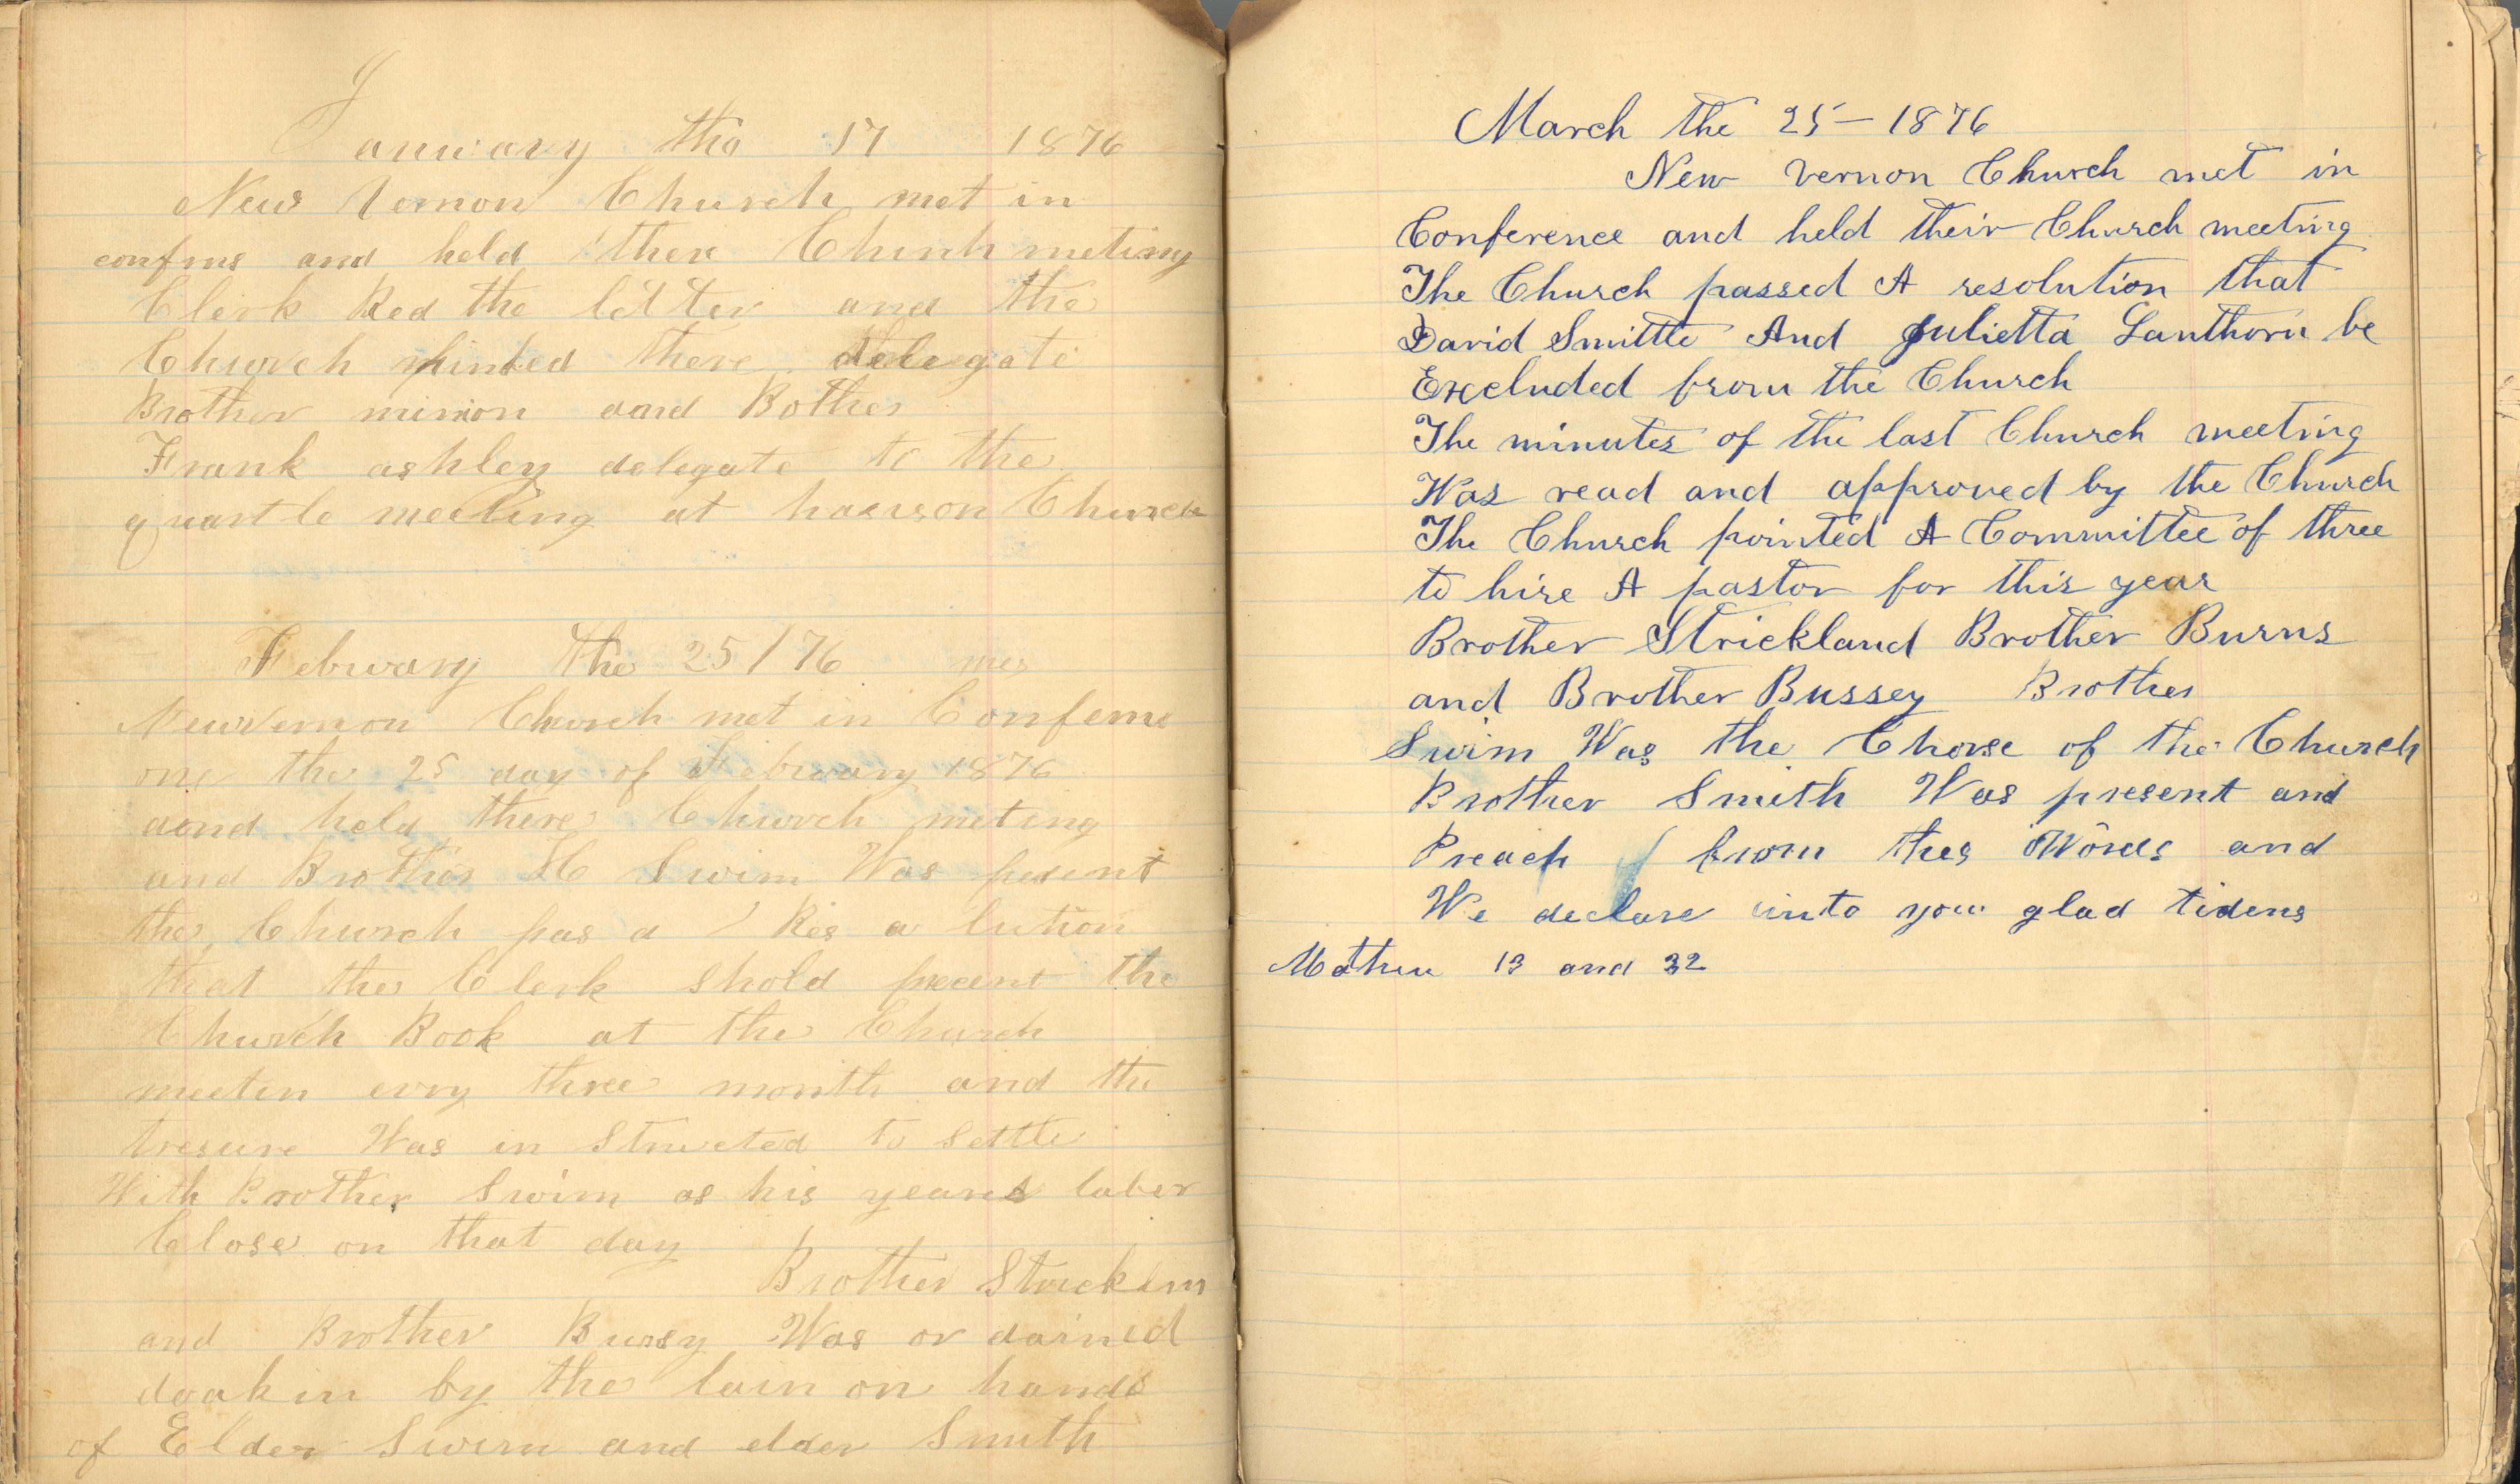 January the 17 1876
New Vernon Church met in
confrns and held there Church meting
Clerk Red the letter and the
Church pinted there delegate
Brother minion aand Bother
Frank ashley delegate to the
quartle meeting at harison Church
February the 25 / 76
New Vernon Church met in Conferns
one the 25 day of February 1876
aand held there Church meting
and Brother H Swim Was pesent
the Church pas a Res a lution
that the Clerk shold present the
Church Book at the Church
meetin evry three month and the
tresure Was in structed to settle
With Brother Swim as his years laber
Close on that day
Brother Stricklm
and Brother Bussy Was or dained
doakin by the lain on hands
of Elder Swim and elder Smith
March the 25 — 1876
New Vernon Church met in
Conference and held their Church meeting
The Church passed A resolution that
David Smittle And Julietta Lanthorn be
Excluded from the Church
The minutes of the last Church meeting
Was read and approved by the Church
The Church pointed A Committee of three
to hire A pastor for this year
Brother Strickland Brother Burns
and Brother Bussey Brother
Swim Was the Chorse of the Church
Brother Smith Was present and
Preach from thes Words and
We declare unto you glad tidens
Mathew 13 and 32